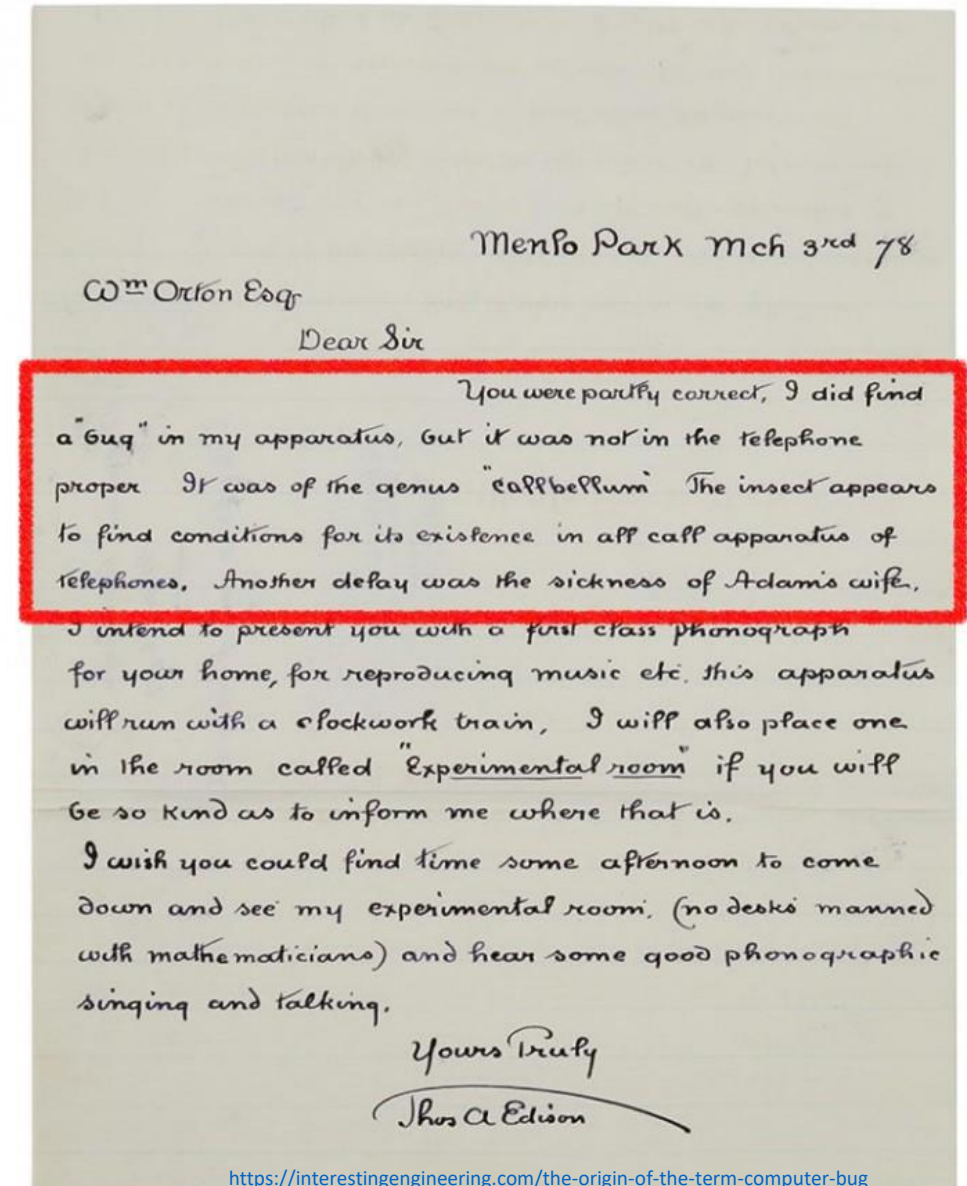 Menlo Park Mch 3rd 78
Wm Orton Esqr
Dear Sir
You were partly correct, I did find
a "bug" in my apparatus, but it was not in the telephone
proper It was of the genus "callbellum" The insect appears
to find conditions for its existence in all call apparatus of
telephones. Another delay was the sickness of Adams wife.
I intend to present you with a first class phonograph
for your home, for reproducing music etc. this apparatus
will run with a clockwork train, I will also place one
in the room called "Experimental room" if you will
be so kind as to inform me where that is.
I wish you could find time some afternoon to come
down and see my experimental room, (no desks manned
with mathematicians) and hear some good phonographic
singing and talking.
Yours Truly
Thos A Edison
https://interestingengineering.com/the-origin-of-the-term-computer-bug